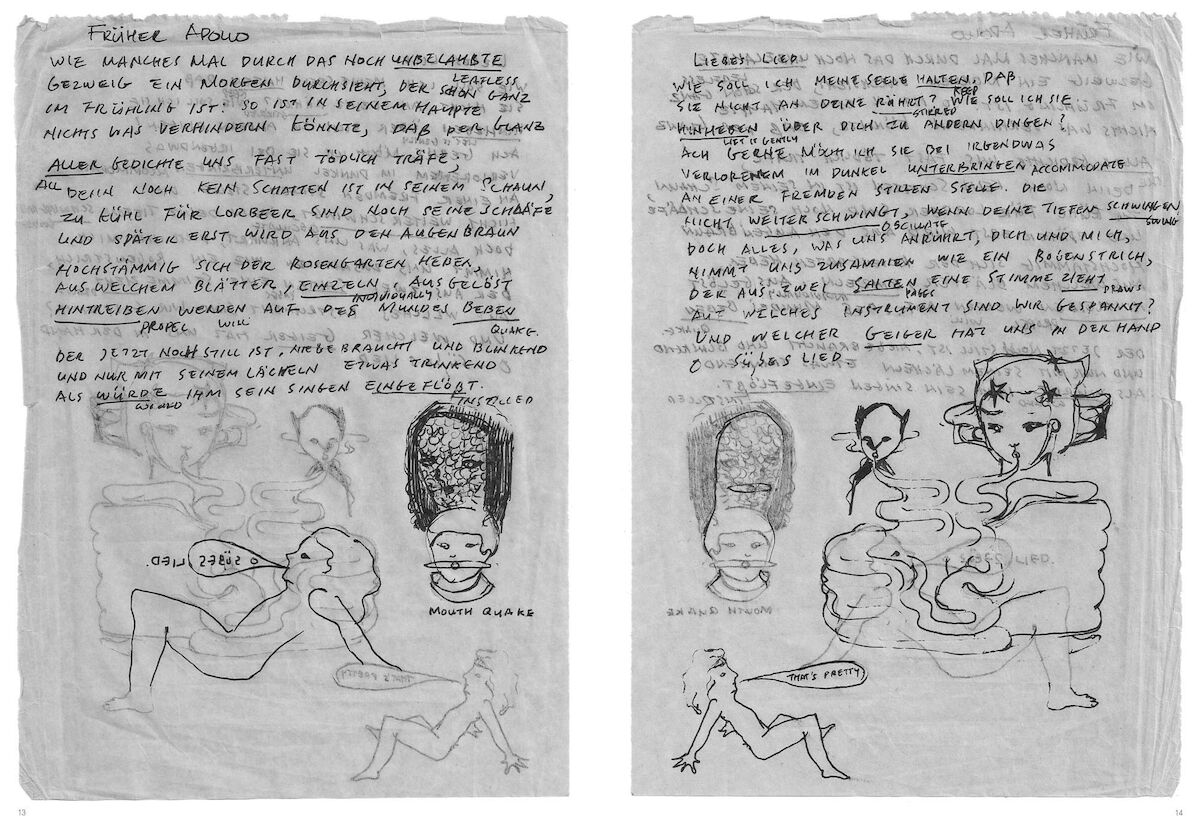 FRÜHER APOLLO
WIE MANCHES MAL DURCH DAS NOCH UNBELAUBTE
LEAFLESS
GEZWEIG EIN MORGEN DURCHSIEHT, DER SCHON GANZ
IM FRÜHLING IST: SO IST IN SEINEM HAUPTE
NICHTS WAS VERHINDERN KÖNNTE, DAß DER GLANZ
ALLER GEDICHTE UNS FAST TÖDLICH TRÄFE;
ALL
DENN NOCH KEIN SCHATTEN IST IN SEINEM SCHAUN,
ZU KÜHL FÜR LORBEER SIND NOCH SEINE SCHLÄFE
UND SPÄTER ERST WIRD AUS DEN AUGENBRAUN
HOCHSTÄMMIG SICH DER ROSENGARTEN HEBEN,
AUS WELCHEM BLÄTTER, EINZELN, AUSGELÖST
INDIVIDUALLY
HINTREIBEN WERDEN AUF DES MUNDES BEBEN
PROPEL WILL QUAKE.
DER JETZT NOCH STILL IST, NIEGEBRAUCHT UND BLINKEND
UND NUR MIT SEINEM LÄCHELN ETWAS TRINKEND
ALS WÜRDE IHM SEIN SINGEN EINGEFLÖßT.
WOULD INSTILLED
MOUTH QUAKE
O SÜßES LIED.
THAT'S PRETTY
13
LIEBES LIED
WIE SOLL ICH MEINE SEELE HALTEN, DAß
KEEP
SIE NICHT AN DEINE RÜHRT? WIE SOLL ICH SIE
STIRRED
HINHEBEN ÜBER DICH ZU ANDERN DINGEN?
LIFT IS GENTLY
ACH GERNE MÖCHT ICH SIE BEI IRGENDWAS
VERLORENEM IM DUNKEL UNTERBRINGEN ACCOMMODATE
AN EINER FREMDEN STILLEN STELLE. DIE
NICHT WEITERSCHWINGT, WENN DEINE TIEFEN SCHWINGEN
OSCILLATE SWING
DOCH ALLES, WAS UNS ANRÜHRT, DICH UND MICH,
NIMMT UNS ZUSAMMEN WIE EIN BOGENSTRICH,
DER AUS ZWEI SAITEN EINE STIMME ZIEHT.
PAGES DRAWS
AUF WELCHES INSTRUMENT SIND WIR GESPANNT?
UND WELCHER GEIGER HAT UNS IN DER HAND
O SÜßES LIED
MOUTH QUAKE
THAT'S PRETTY
14